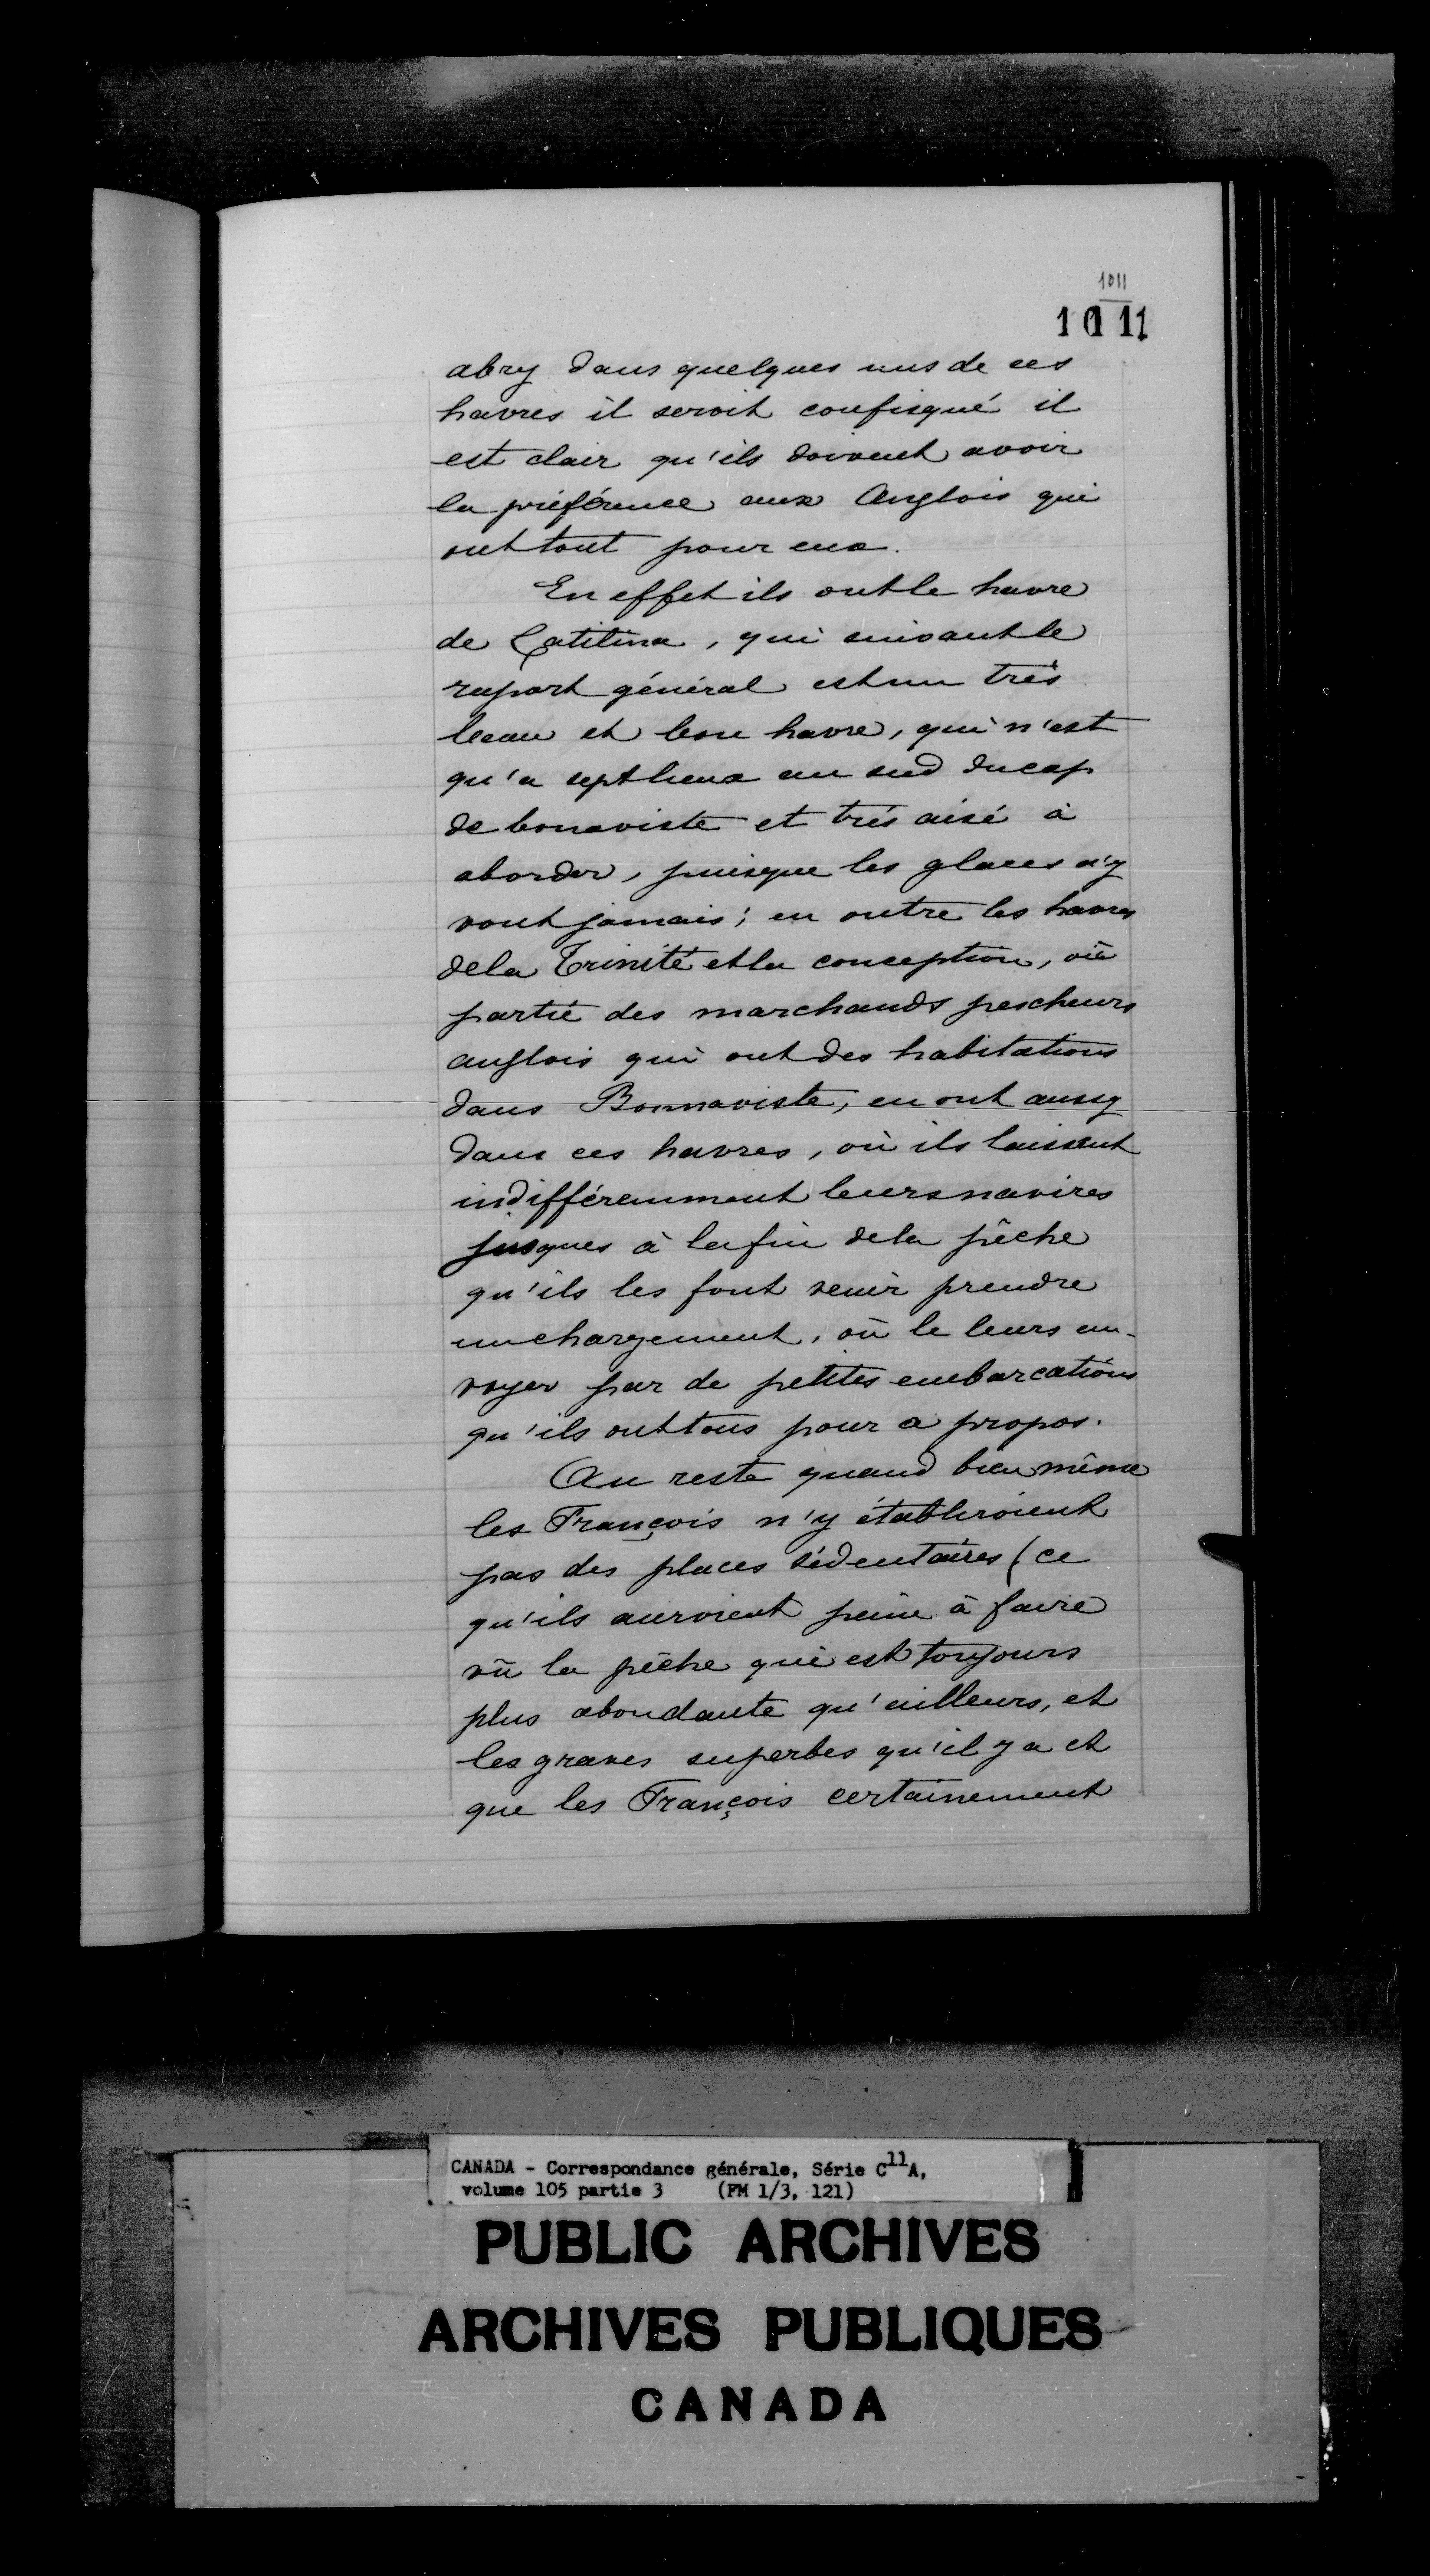 1011
1011
abry dans quelques uns de ces
havres il seroit confisqué il
est clair qu'ils doivent avoir
la préférence aux Anglois qui
ont tout pour eux.
En effet ils ont le havre
de Catilina, qui suivant le
raport général est un très
beau et bon havre, qui n'est
qu'a sept lieux au sud du cap
de bonaviste et très aisé à
aborder, puisque les glaces n'y
vont jamais; en outre les havres
de la Trinité et la conception, où
partie des marchands pescheurs
anglois qui ont des habitations
dans Bonnaviste, en ont aussy
dans ces havres, où ils laissent
indifféremment leurs navires
jusques à la fin de la pêche
qu'ils les font venir prendre
un chargement, où le leurs en-
voyer par de petites embarcations
qu'ils ont tous pour a propos.
Au reste quand bien même
les François n'y établiroient
pas des places sédentaires (ce
qu'ils auroient peine à faire
vû la pêche qui est toujours
plus abondante qu'ailleurs, et
les graves superbes qu'il y a et
que les François certainement
CANADA - Correspondance générale, Série C11A,
volume 105 partie 3 (FM 1/3, 121)
PUBLIC ARCHIVES
ARCHIVES PUBLIQUES
CANADA